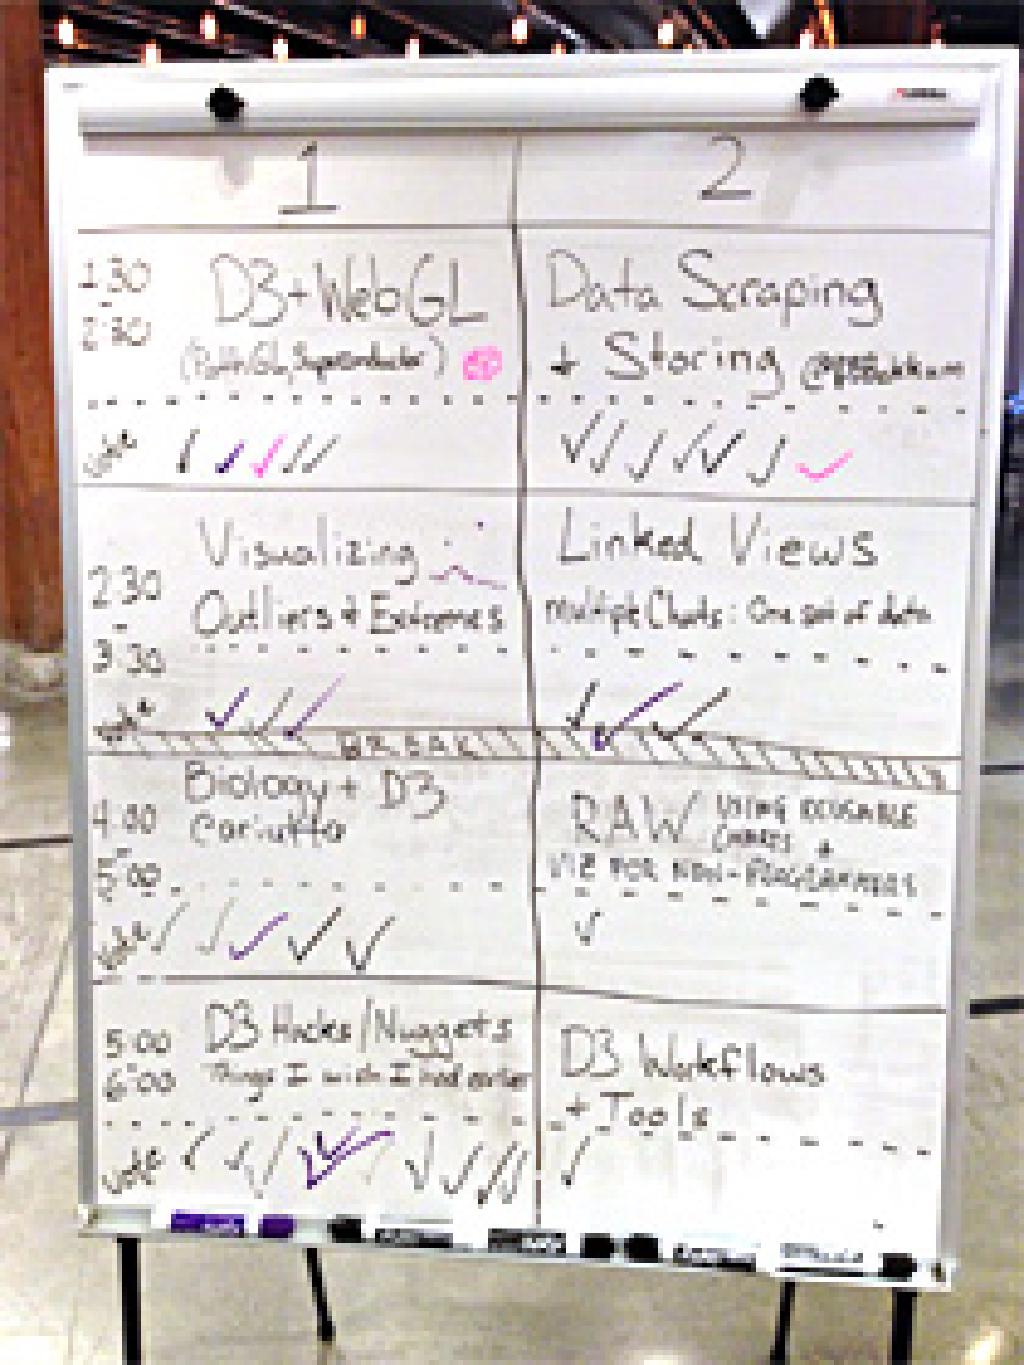 1
2
1:30
-
2:30
D3+WebGL
(PathGL, Superconductor)
Data Scraping
+ Storing
vote
2:30
-
3:30
Visualizing
Outliers & Extremes
Linked Views
multiple Charts: One set of data
vote
BREAK
4:00
-
5:00
Biology + D3
RAW USING REUSABLE
CHARTS +
VIZ FOR NON-PROGRAMMERS
vote
5:00
-
6:00
D3 Hacks/Nuggets
Things I wish I had earlier
D3 Workflows
+ Tools
vote